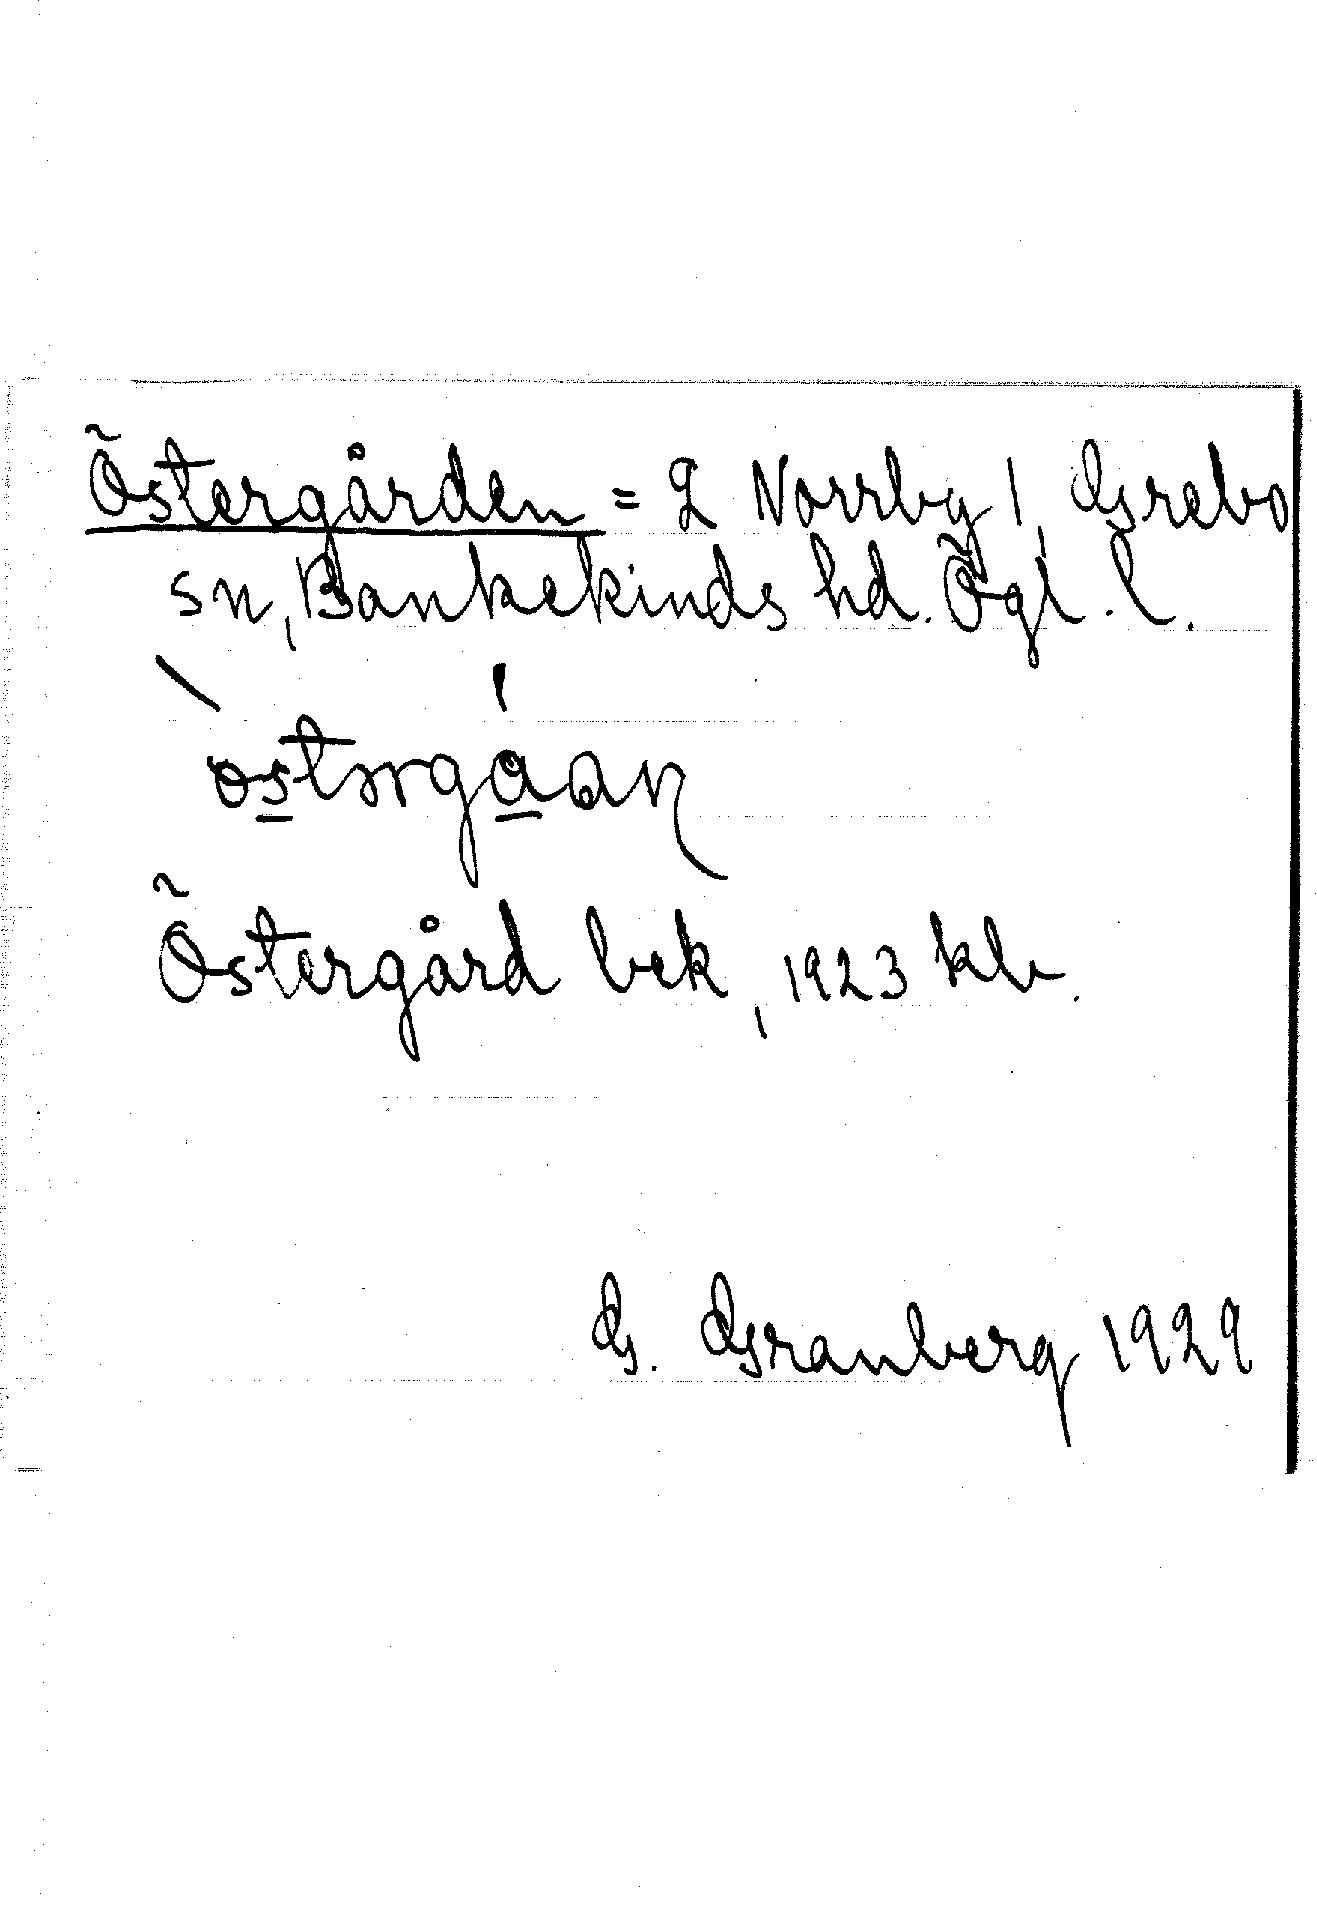 Östergården = 2 Norrby 1, Grebo
sn, Bankekinds hd. Ögl. l.
Östergård bek, 1923 kb.
G. Granberg 1929